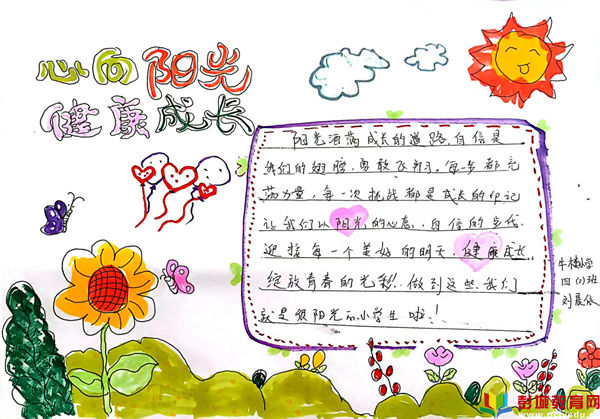 心向阳光
健康成长
阳光洒满成长的道路,自信是
我们的翅膀,勇敢飞翔,每一步都充
满力量,每一次挑战都是成长的印记
让我们以阳光的心态,自信的步伐
迎接每一个美好的明天,健康成长
绽放青春的光彩,做到这些,我们
就是很阳光的小学生啦!
四(2)班
彭城教育网